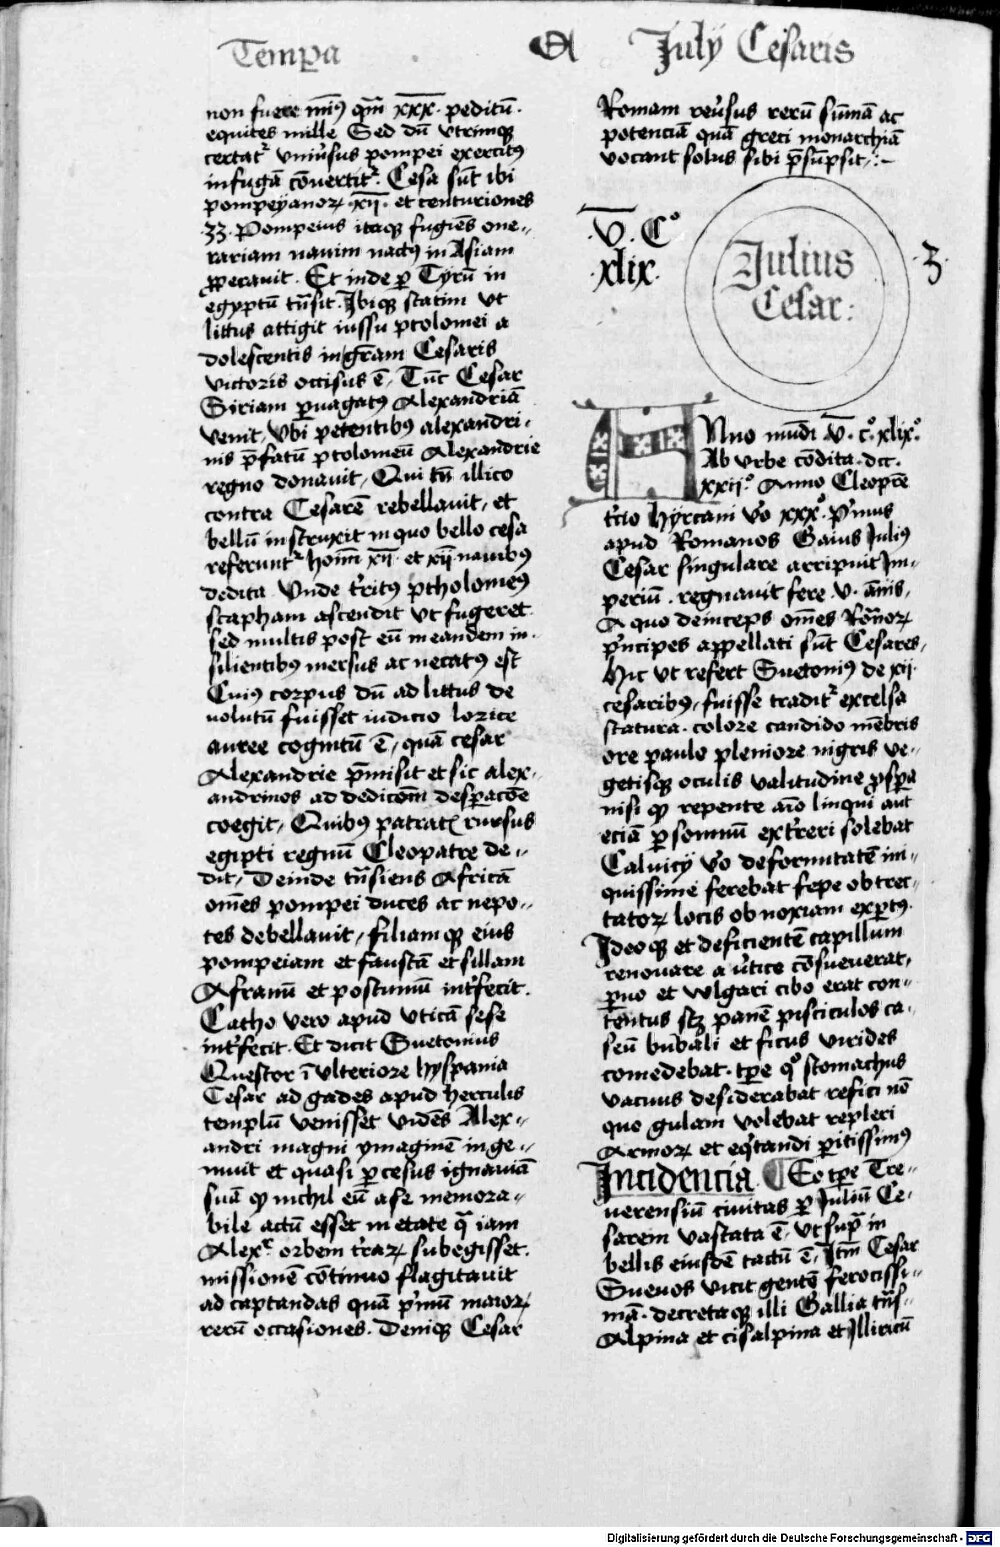 Tempa
A
July Cesaris
non fuere miꝰ qm̄ xxx. peditū.
equites mille Sed dū vtrimqꝫ
certatr vniūsus pompei exercitꝰ
infugā cōuertitr. Cesa sūt ibi
pompeyanoꝝ .xij. et centuriones
33. Pompeius itaqꝫ fugiēs one-
rariam nauim nactꝰ in Asiam
ꝓperauit. Et inde ꝑ Tyrū in
egyptū tn̄sit. Ibiqꝫ statim vt
littus attigit iussu ptolomei a
dolescentis in grām Cesaris
victoris occisus ē, Tūc Cesar
Siriam ꝑuagatꝰ Alexandriā
venit, vbi petentibꝰ alexandri-
nis p̄fatū ptolomeū Alexandrie
regno donauit, Qui tn̄ illico
contra Cesarē rebellauit, et
bellū instruxit in quo bello cesa
referuntr hoīm xij. et xij nauibꝰ
dedita Vnde t̄ritꝰ ptholomeꝰ
scapham ascendit vt fugeret.
sed multis post eū in eandem in-
silientibꝰ mersus ac necatꝰ est
Cuiꝰ corpus dū ad littus de
uolutū fuisset iudicio lorice
auree cognitū ē, quā cesar
Alexandrie p̄misit et sic alex-
andrinos ad dedicōm desꝑacōe
coegit, Quibꝰ patratꝭ rursus
egipti regnū Cleopatre de-
dit, Deinde tn̄siens Africā
om̄es pompei duces ac nepo-
tes debellauit, filiamqꝫ eius
pompeiam et faustā et sillam
Afranū et postumū int̄fecit.
Catho vero apud vticā sese
int̄fecit. Et dicit Suetonius
Questor ī vlteriore hyspania
Cesar ad gades apud herculis
templū venisset vidēs Alex-
andri magni ymaginē inge-
muit et quasi ꝑcesus ignauiā
suā qꝫ nichil eū a se memora-
bile actū esset in etate qͣ iam
Alexr orbem t̄raꝝ subegisset.
missionē cōtinuo flagitauit
ad captandas quā p̄mū maioꝝ
rerū occasiones. Deniqꝫ Cesar
Romam reūsus rerū sūmā ac
potenciā quā greci monarchiā
vocant solus sibi p̄sūpsit,:-
.V. Cº
.xlix.
Julius
Cesar:
.3.
Anno mūdi .V. cº. xlixº.
Ab vrbe cōdita. dcc.
xxijº. Anno Cleopre
t̄cio hyrcani v̄o xxxº. p̄mus
apud Romanos Gaius Juliꝰ
Cesar singulare arripuit Im-
periū. regnauit fere v. ānis,
A quo deinceps om̄es Rōnoꝝ
p̄ncipes appellati sūt Cesares,
Hic vt refert Suetoniꝰ de xij.
cesaribꝰ, fuisse traditr excelsa
statura. colore candido mēbris
ore paulo pleniore nigris ve-
getisqꝫ oculis valitudine ꝓspa
nisi qꝫ repente aīo linqui aut
eciā ꝑ somnū ext̄reri solebat
Caluicij v̄o deformitatē in-
iquissime ferebat sepe obtrec-
tatoꝝ locis obnoxiam exꝑtꝰ.
Ideoqꝫ et deficientē capillum
renouare a v̄tice cōsueuerat,
ꝑuo et wlgari cibo erat con-
tentus scꝫ panē pisciculos ca-
seū bubali et ficus virides
comedebat. tꝑe qº stomachus
vacuus desiderabat refici nō
quo gulam volebat repleri
Armoꝝ et eq̄tandi ꝑitissimꝰ
Incidencia. Eo tꝑe Tre-
uerensiū ciuitas ꝑ Juliū Ce-
sarem vastata ē, vt supͣ in
bellis eiusdē tactū ē, Itm̄ Cesar
Sueuos vicit gentē ferocissi-
mā. decretaqꝫ illi Gallia tn̄s-
Alpina et cisalpina et Illiricū
Digitalisierung gefördert durch die Deutsche Forschungsgemeinschaft - DFG